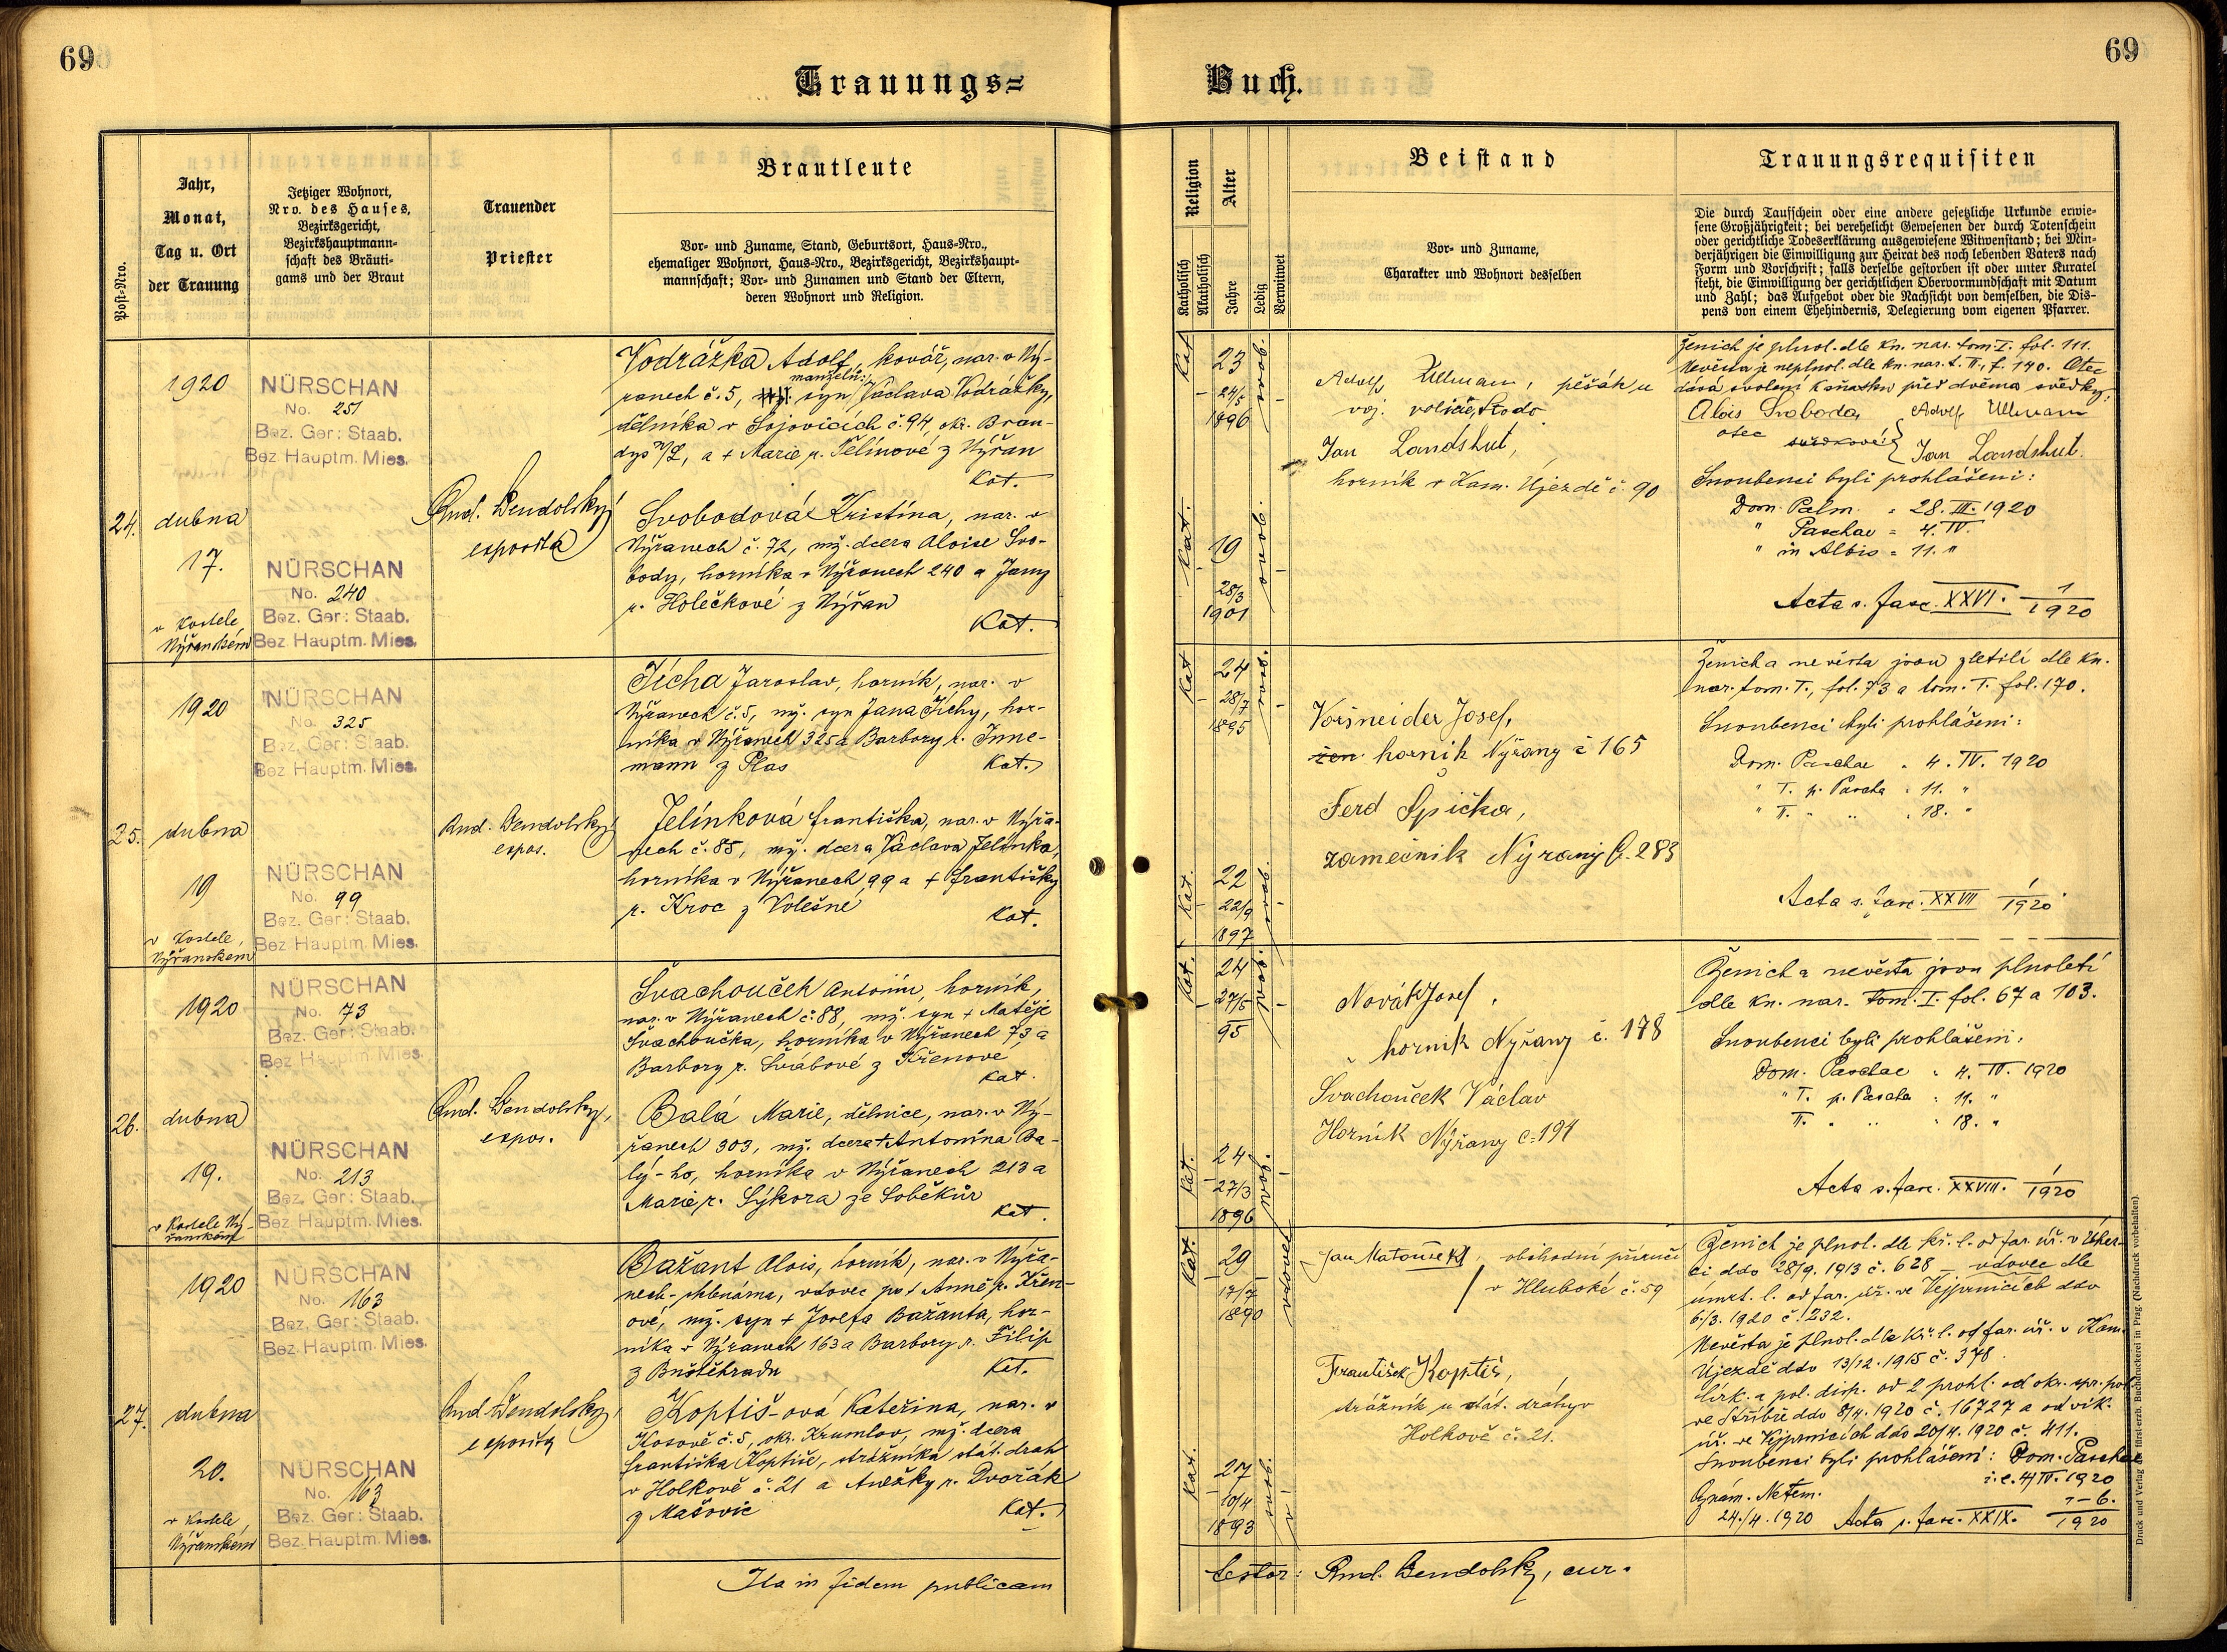 69
69
Trauungs=
Buch.
Post-Nro.
Jahr,
Monat,
Tag u. Ort
der Trauung
Jetziger Wohnort,
Nro. des Hauses,
Bezirksgericht,
Bezirkshauptmann-
schaft des Bräuti-
gams und der Braut
Trauender
Priester
Brautleute
Vor- und Zuname, Stand, Geburtsort, Haus-Nro.,
ehemaliger Wohnort, Haus-Nro., Bezirksgericht, Bezirkshaupt-
mannschaft; Vor- und Zunamen und Stand der Eltern,
deren Wohnort und Religion.
Religion
Katholisch
Akatholisch
Alter
Jahre
Ledig
Verwitwet
Beistand
Vor- und Zuname,
Charakter und Wohnort desselben
Trauungsrequisiten
Die durch Taufschein oder eine andere gesetzliche Urkunde erwie-
sene Großjährigkeit; bei verehelicht Gewesenen der durch Totenschein
oder gerichtliche Todeserklärung ausgewiesene Witwenstand; bei Min-
derjährigen die Einwilligung zur Heirat des noch lebenden Vaters nach
Form und Vorschrift; falls derselbe gestorben ist oder unter Kuratel
steht, die Einwilligung der gerichtlichen Obervormundschaft mit Datum
und Zahl; das Aufgebot oder die Nachsicht von demselben, die Dis-
pens von einem Ehehindernis, Delegierung vom eigenen Pfarrer.
24.
1920
dubna
17.
v kostele
Nýřanském
NÜRSCHAN
No. 251
Bez. Ger: Staab.
Bez Hauptm. Mies.
NÜRSCHAN
No. 240
Bez. Ger: Staab.
Bez Hauptm. Mies.
Rud. Bendolský
exposita
Vodrážka Adolf, kovář, nar. v Ný-
manželů:
řanech č. 5, syn Václava Vodrážky,
dělníka v Sojovicích č. 94, okr. Bran-
dýs n/L, a + Marie r. Pelínové z Nýřan
Kat.
Svobodová Kristina, nar. v
Nýřanech č. 72, mž. dcera Aloise Svo-
body, horníka v Nýřanech 240 a Jany
r. Holečkové z Nýřan
Kat.
Kat
23
24/5
1896
svob.
Kat.
19
28/3
1901
svob.
Adolf Ullmann, pěšák u
voj.
Jan Landshut,
horník v Kam. Újezdě č. 90
Ženich je plnol. dle kn. nar. tom. I. fol. 111.
Nevěsta je neplnol. dle kn. nar. t. II., f. 140. Otec
dává svolení k sňatku před dvěma svědky:
Alois Svoboda Adolf Ullmann
otec svědkové: Jan Landshut.
Snoubenci byli prohlášeni:
Dom. Palm. = 28. III. 1920
" Paschae = 4. IV.
" in Albis = 11. "
Acta s. fasc. XXVI. 1/1920
25.
1920
dubna
19
v kostele
Nýřanském
NÜRSCHAN
No. 325
Bez. Ger: Staab.
Bez Hauptm. Mies.
NÜRSCHAN
No. 99
Bez. Ger: Staab.
Bez Hauptm. Mies.
Rud. Bendolský
expos.
Tichá Jaroslav, horník, nar. v
Nýřanech č. 5, mž. syn Jana Tichý, hor-
níka v Nýřanech 325 a Barbory r. Inne-
mann z Plas Kat.
Jelínková Františka, nar. v Nýřa-
nech č. 85, mž. dcera Václava Jelínka,
horníka v Nýřanech 99 a + Františky
r. Kroc z Volešné
Kat.
Kat
24
28/7
1895
svob.
Kat.
22
22/9
1897
svob.
Voršneider Josef,
horník Nýřany č 165
Ferd Špička,
zámečník Nýrany č. 283
Ženich a nevěsta jsou zletilí dle kn.
nar. tom. I., fol. 73 a tom. I. fol. 170.
Snoubenci byli prohlášeni:
Dom. Paschae = 4. IV. 1920
" I. p. Pascha = 11. "
" II. " " = 18. "
Acta s. fasc. XXVII 1/1920
26.
1920
dubna
19.
v kostele Ný-
řanském
NÜRSCHAN
No. 73
Bez. Ger: Staab.
Bez Hauptm. Mies.
NÜRSCHAN
No. 213
Bez. Ger: Staab.
Bez Hauptm. Mies.
Rud. Bendolský,
expos.
Švachouček Antonín, horník,
nar. v Nýřanech č. 88, mž. syn + Matěje
Švachoučka, horníka v Nýřanech 73 a
Barbory r. Švábové z Křenove
Kat.
Balá Marie, dělnice, nar. v Ný-
řanech 303, mž. dcera + Antonína Ba-
lý-ho, horníka v Nýřanech 213 a
Marie r. Sýkora ze Soběkur
Kat.
Kat.
24
27/5
95
svob.
Kat.
24
27/3
1896
svob.
Novák Josef.
horník Nýřany č. 178
Svachouček Václav
Horník Nýřany č. 194
Ženich a nevěsta jsou plnoletí
dle kn. nar. tom. I. fol. 67 a 103.
Snoubenci byli prohlášeni:
Dom. Paschae = 4. IV. 1920
" I. p. Pascha = 11. "
II. " " = 18. "
Acta s. fasc. XXVIII. 1/1920
27.
1920
dubna
20.
v kostele
Nýřanském
NÜRSCHAN
No. 163
Bez. Ger: Staab.
Bez Hauptm. Mies.
NÜRSCHAN
No. 163
Bez. Ger: Staab.
Bez. Hauptm. Mies.
Rud. Bendolský
exposita
Bažant Alois, horník, nar. v Nýřa-
nech, vdovec po + Anně r. Křen-
ové, mž. syn + Josefa Bažanta, hor-
níka v Nýřanech 163 a Barbory r. Filip
z Buštěhradu Kat.
Koptiš-ová Kateřina, nar. v
Kosově č. 5, okr. Krumlov, mž. dcera
Františka Koptiše, strážníka stát. drah
v Holkově č. 21 a Anežky r. Dvořák
z Mašovic Kat.
Kat.
29
17/7
1890
vdovec
Kat.
27
10/4
1893
svob.
Jan Matoušek, obchodní příručí
v Hluboké č. 59
František Koptiš,
strážník u stát. dráhy v
Holkově č. 21.
Ženich je plnol. dle kř. l. od far. úř. v Úher-
ci ddo 28/9. 1913 č. 628 – vdovec dle
úmrt. l. od far. úř. ve Vejprnicích ddo
6./3. 1920 č. 232.
Nevěsta je plnol. dle kř. l. od far. úř. v Kam.
Újezdě ddo 13/12. 1915 č. 378.
Círk. a pol. disp. od 2 prohl. od okr. spr. pol.
ve Stříbře ddo 8/4. 1920 č. 16727 a od vik.
úř. ve Vejprnicích ddo 20/4. 1920 č. 411.
Snoubenci byli prohlášeni: Dom. Paschae
i. e. 4/IV. 1920
Oznám. Netěm.
24./4. 1920 Acta s. fasc. XXIX. 1-6./1920
Ita in fidem publicam
testor: Rud. Bendolský, cur.
Druck und Verlag der fürsterzb. Buchdruckerei in Prag. (Nachdruck vorbehalten).